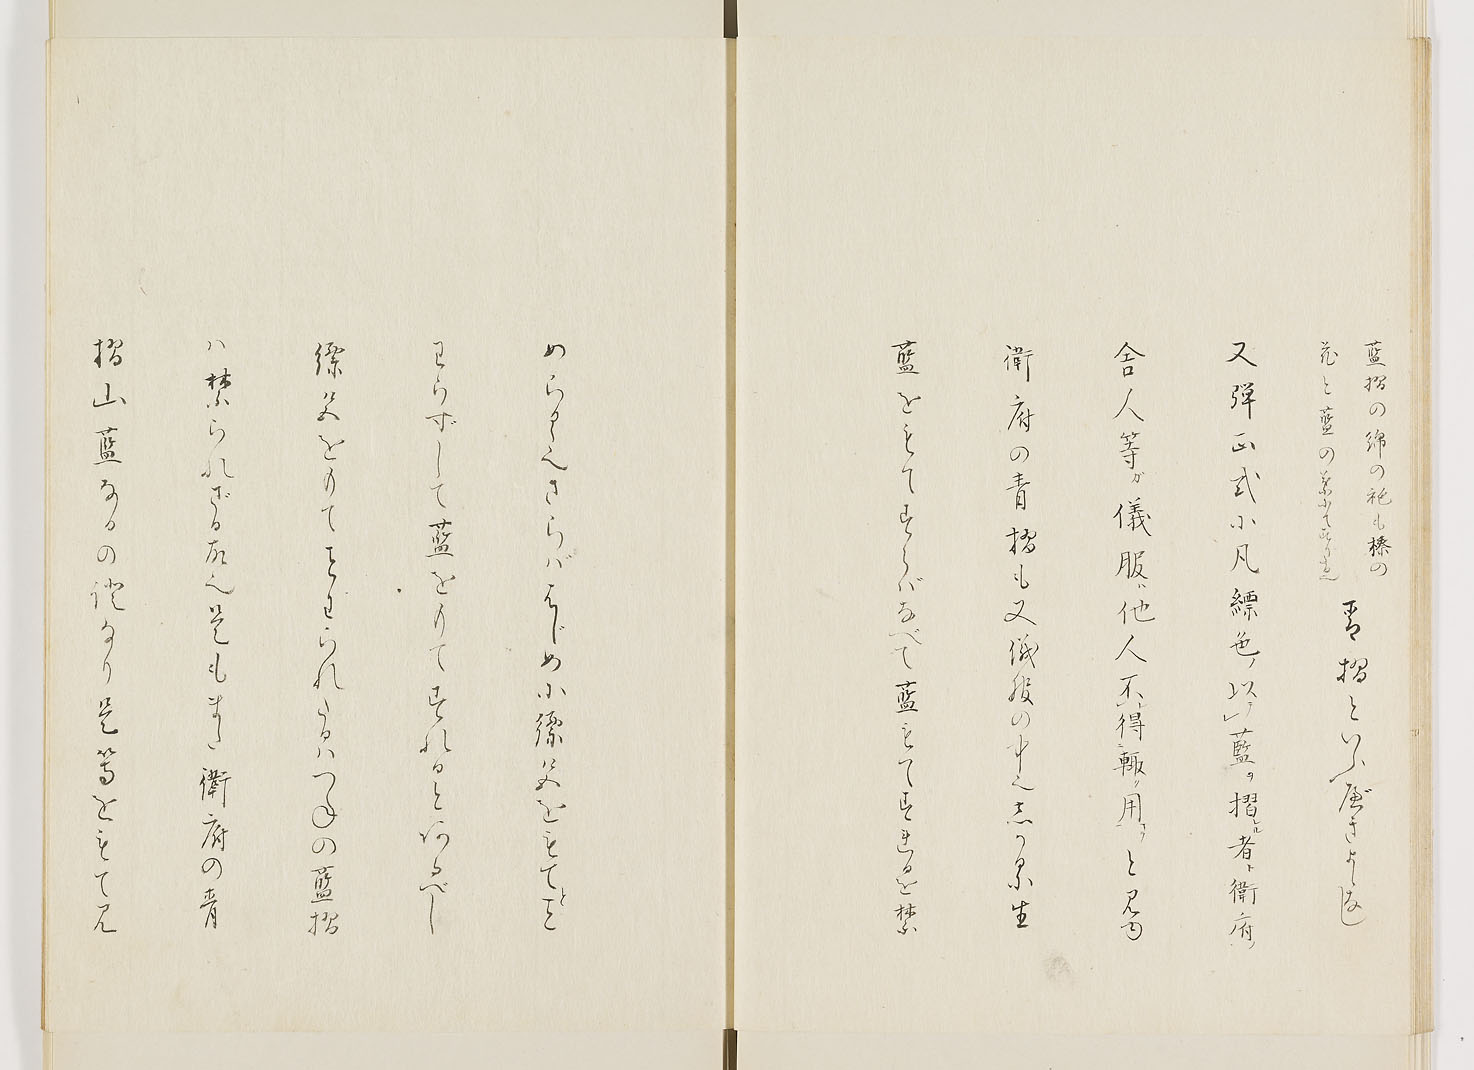 藍摺の綿の袍も榛の
花と藍の葉にてすりたる
青摺といふべきよしなし
又弾正式に凡縹色ノ以テ藍ヲ摺ル者ト衛府ノ
舎人等ガ儀服ハ他人不得輙ク用ヰルヿヲと見ゆ
衛府の青摺も又儀服の中也
藍をもてすらばなべて藍もてすれるを禁
めらるべしさらばはじめに縹色をもてと
にあらずして藍をもてすれるとあるべし
縹色をもてことわられたるはつねの藍摺
ハ禁られざる故也是もまた衛府の青
摺山藍なるの證なり是等をもて見